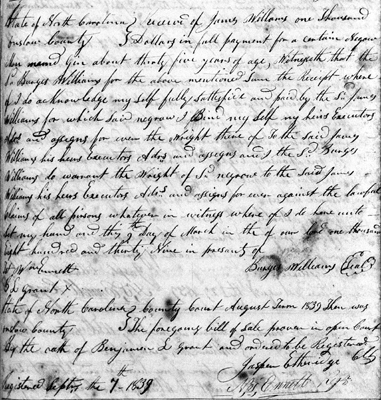 State of North Carolina } received of James Williams one Thousand
onslow County } Dollars in full payment for a certain Negro
man named Gin about thirty five years of age, Witnesseth that the
Sd. Burges Williams for the above mentioned sum the Receipt where
of I do acknowledge my self fully sattesfied and paid by the Sd. James
Williams for which said negrow I Bind my self my heirs Executors
Adrs and assigns for ever the Wright there of To the said James
Williams his heirs Executors Adrs and assigns and I the Sd. Burges
Williams do warrant the Wright of Sd negrow to the said James
Williams his heirs Executors Adrs and assigns for ever against the lawful
claims of all persons whatever in witness where of I do here unto
set my hand and this Day of March in the of our Lord one thousand
eight hundred and thirty Nine in presants of
Burges Williams (Seal)
B L Grant X
State of North Carolina } County Court August Term 1839 Then was
onslow County } The foregoing bill of sale proven in open Court
by the oath of Benjamin L Grant and ordered to be Registered
Jasper Etheridge Clk
Registered Sept the 7th 1839